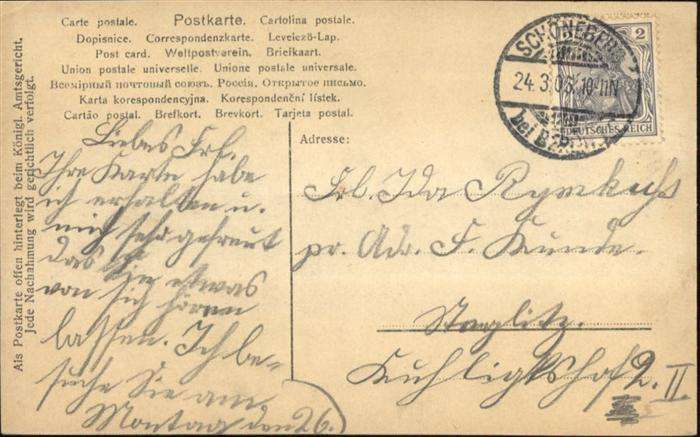 Carte postale. Postkarte. Cartolina postale.
Dopisnice. Correspondenzkarte. Levelező-Lap.
Post card. Weltpostverein. Briefkaart.
Union postale universelle. Unione postale universale.
Всемірный почтовый союзъ. Россія. Открытое письмо.
Karta korespondencyjna. Korespondenční lístek.
Cartão postal. Brefkort. Brevkort. Tarjeta postal.
Als Postkarte offen hinterlegt beim Königl. Amtsgericht,
jede Nachahmung wird gerichtlich verfolgt.
SCHÖNEBERG
24.3.06. 10-11N
bei
2
DEUTSCHES REICH
Liebes Frl.
Ihre Karte habe
ich erhalten u.
mich sehr gefreut
das Sie etwas
von sich hören
lassen. Ich be-
suche Sie am
Montag den 26.
Adresse:
Frl. Ida
pr. Adr. F. Kunde.
Steglitz.
Kuhligkshof 2. II.